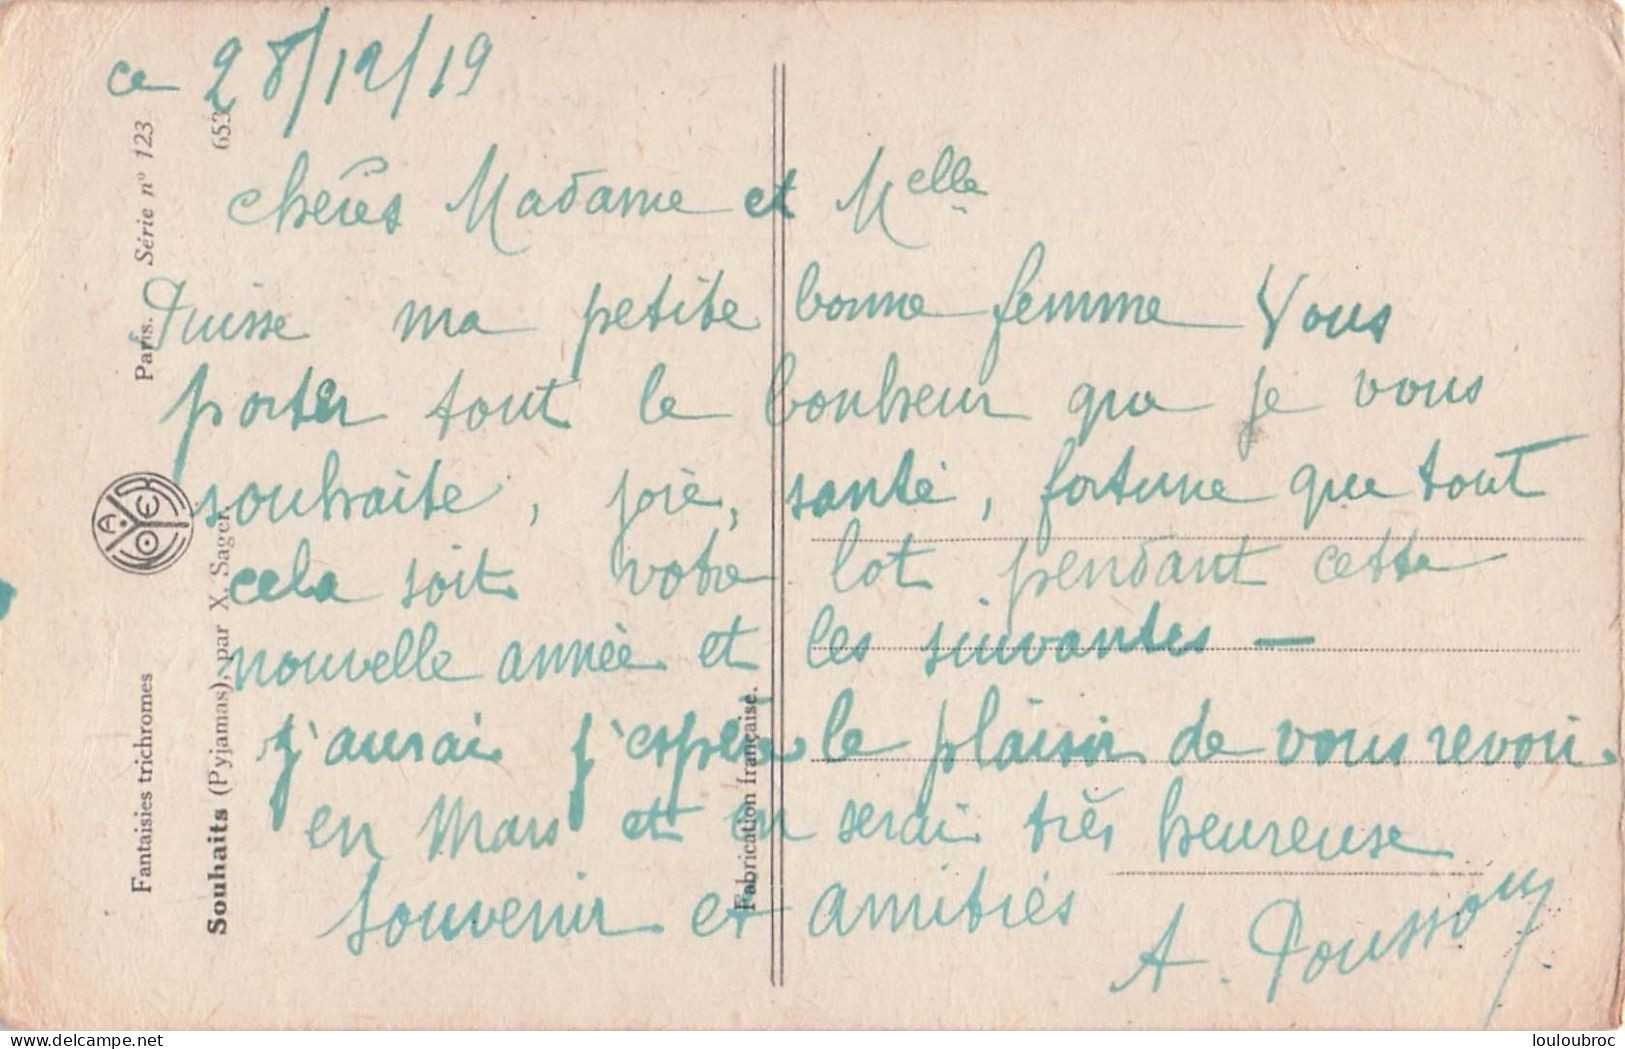 ce 28/12/19
chères Madame et Melle
Puisse ma petite bonne femme Vous
porter tout le bonheur que je vous
souhaite, joie, santé, fortune que tout
cela soit votre lot pendant cette
nouvelle année et les suivantes —
j'aurai j'espère le plaisir de vous revoir
en Mars et en serai très heureuse
Souvenir et amitiés
A.
Fantaisies trichromes
Paris. Série n° 123
Souhaits (Pyjamas), par X. Sager.
653
Fabrication française.
delcampe.net
louloubroc